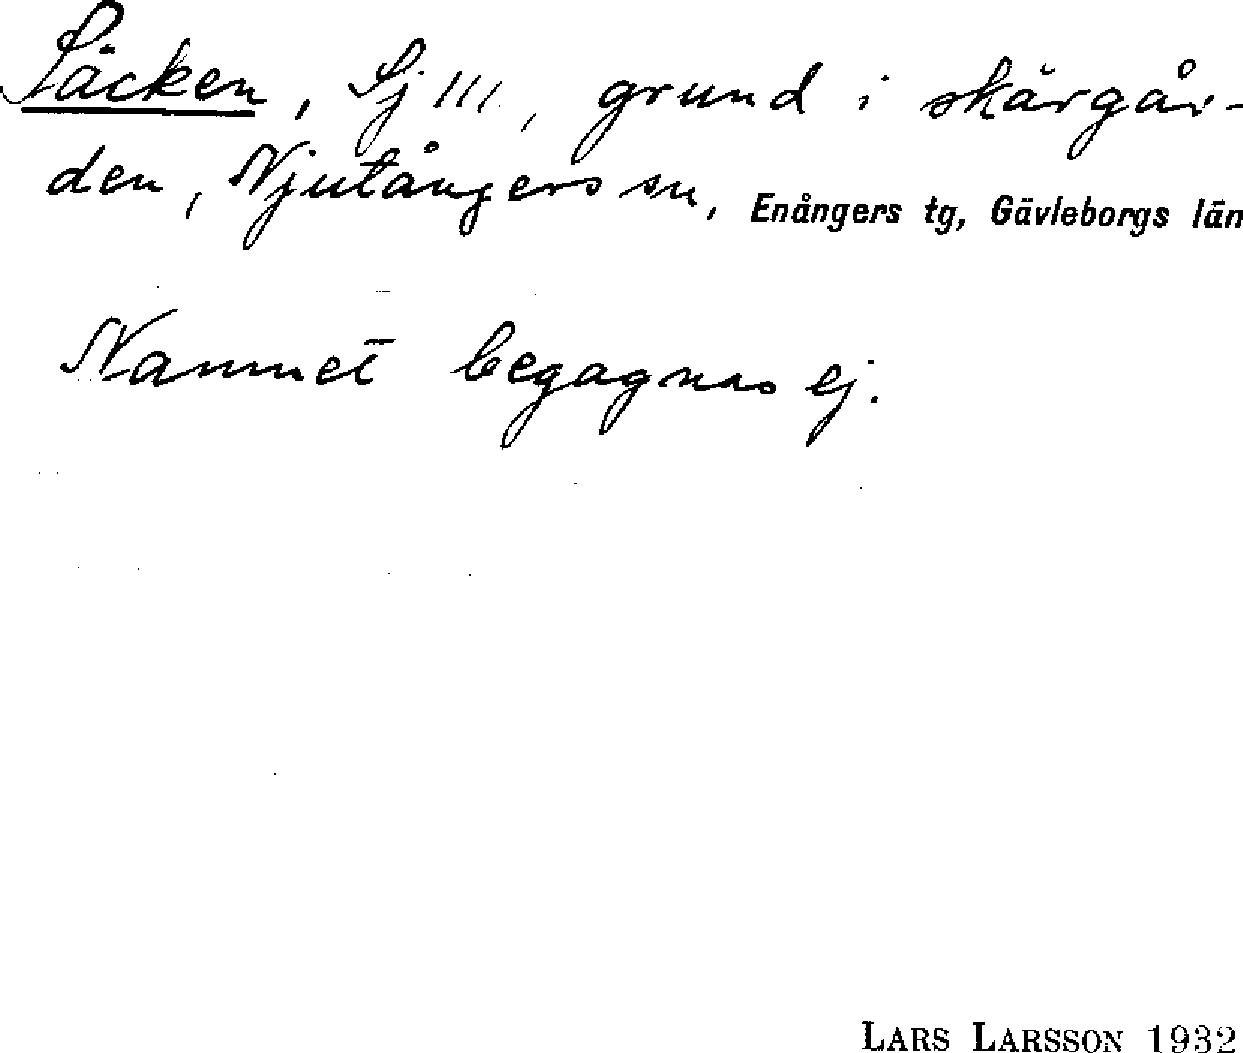 Säcken, Sj 111, grund i skärgår-
den, Njutångers sn, Enångers tg, Gävleborgs län
Namnet begagnas ej.
LARS LARSSON 1932